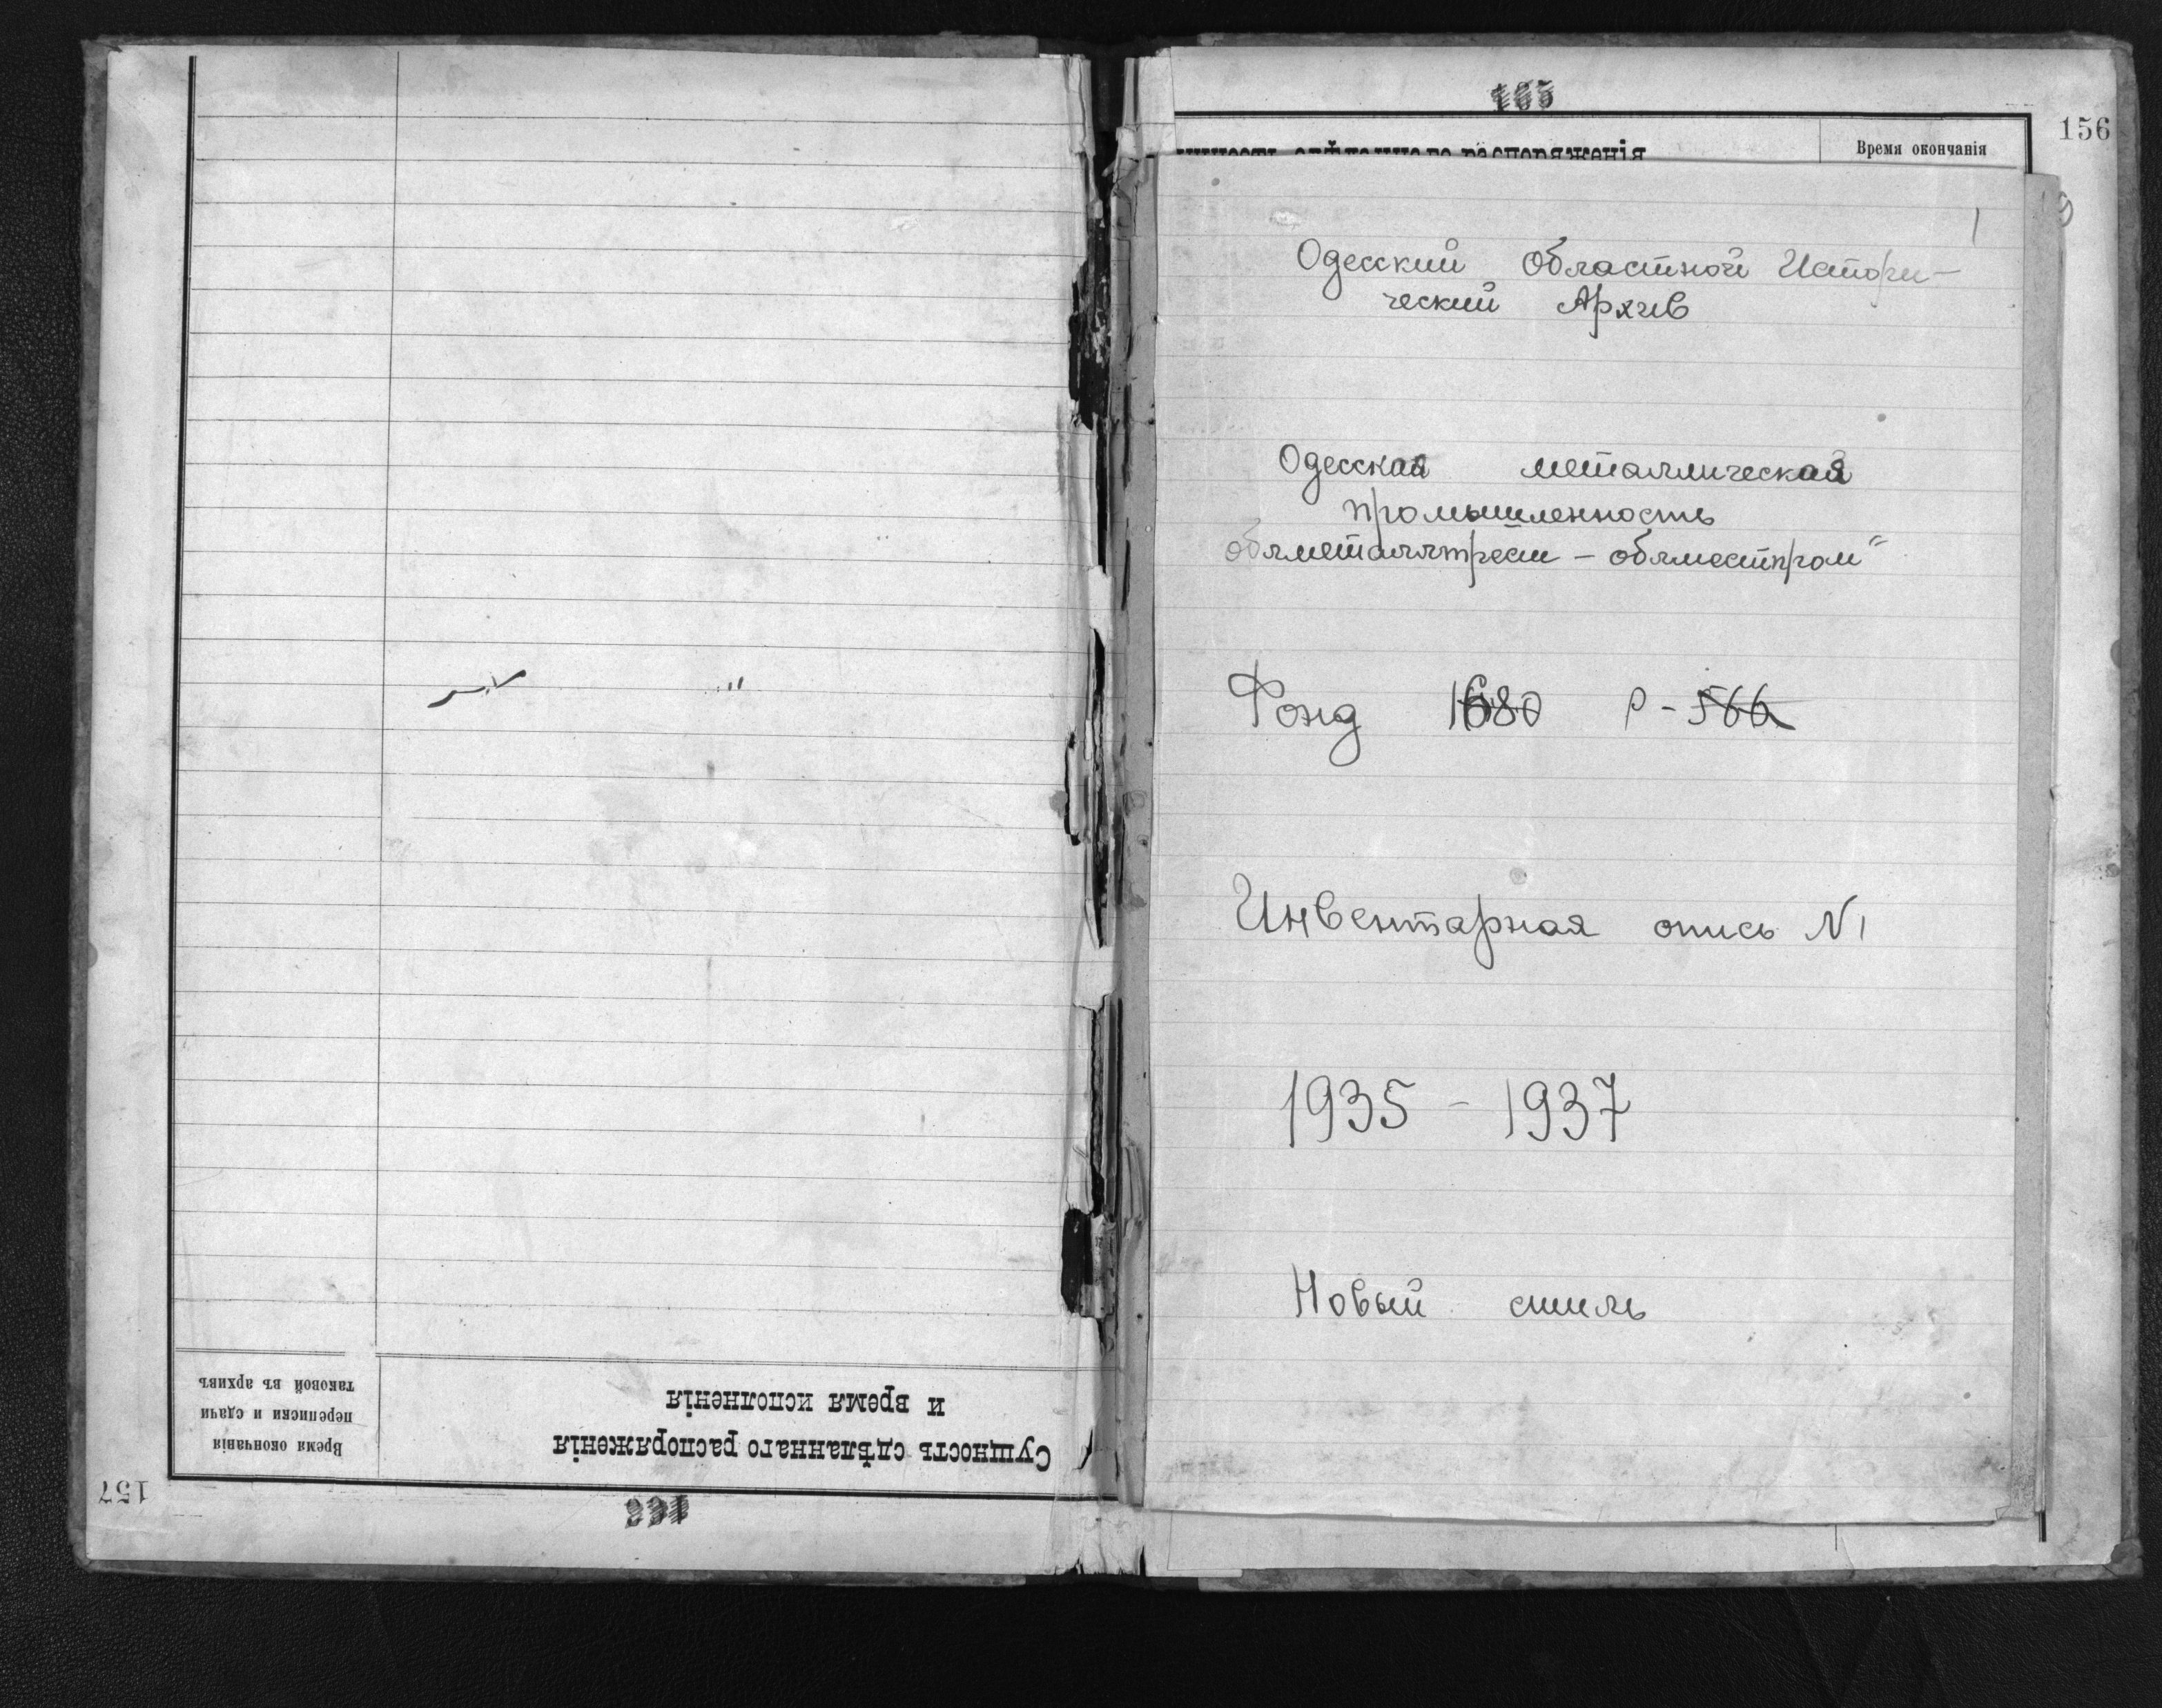 156
Время окончанія
1
Одесский Областной Истори-
ческий Архив
Одесская металлическая
промышленность
облметаллтрест - облместпром"
Фонд 1680 Р-566
Инвентарная опись N1
1935 - 1937
Новый стиль
Сущность сдѣланнаго распоряженія
и время исполненія
Время окончанія
переписки и сдачи
таковой въ архивъ
157